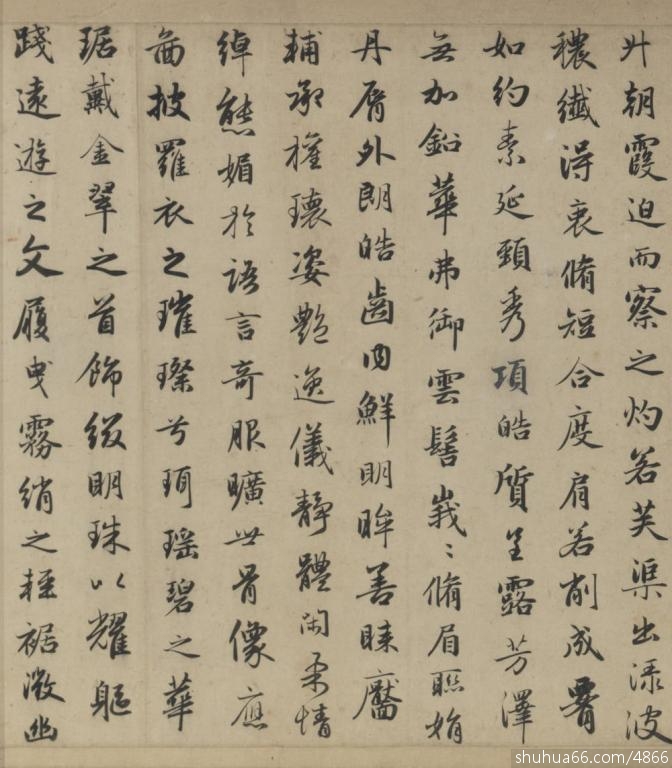 升朝霞迫而察之灼若芙渠出渌波
穠纖得衷脩短合度肩若削成署
如約素延頸秀項皓質呈露芳澤
無加鉛華弗御雲髻峩〻脩眉聯娟
丹脣外朗皓齒內鮮明眸善睞靨
輔承權瓌姿艷逸儀靜體閑柔情
綽態媚於語言奇服曠世骨像應
畵披羅衣之璀璨兮珥瑶碧之華
琚戴金翠之首飾綴明珠以耀軀
踐遠遊之文履曳霧綃之輕裾微幽
shuhua66.com/4866